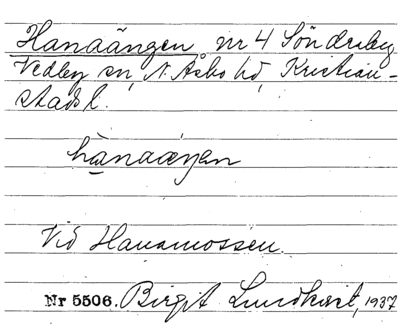 Hanaängen nr 4 Sönderby
Vedby sn, N. Åsbo hd, Kristian-
stads l.
hanaäŋen
Vid Hanamossen.
Nr 5506. Birgit Lundkvist, 1937